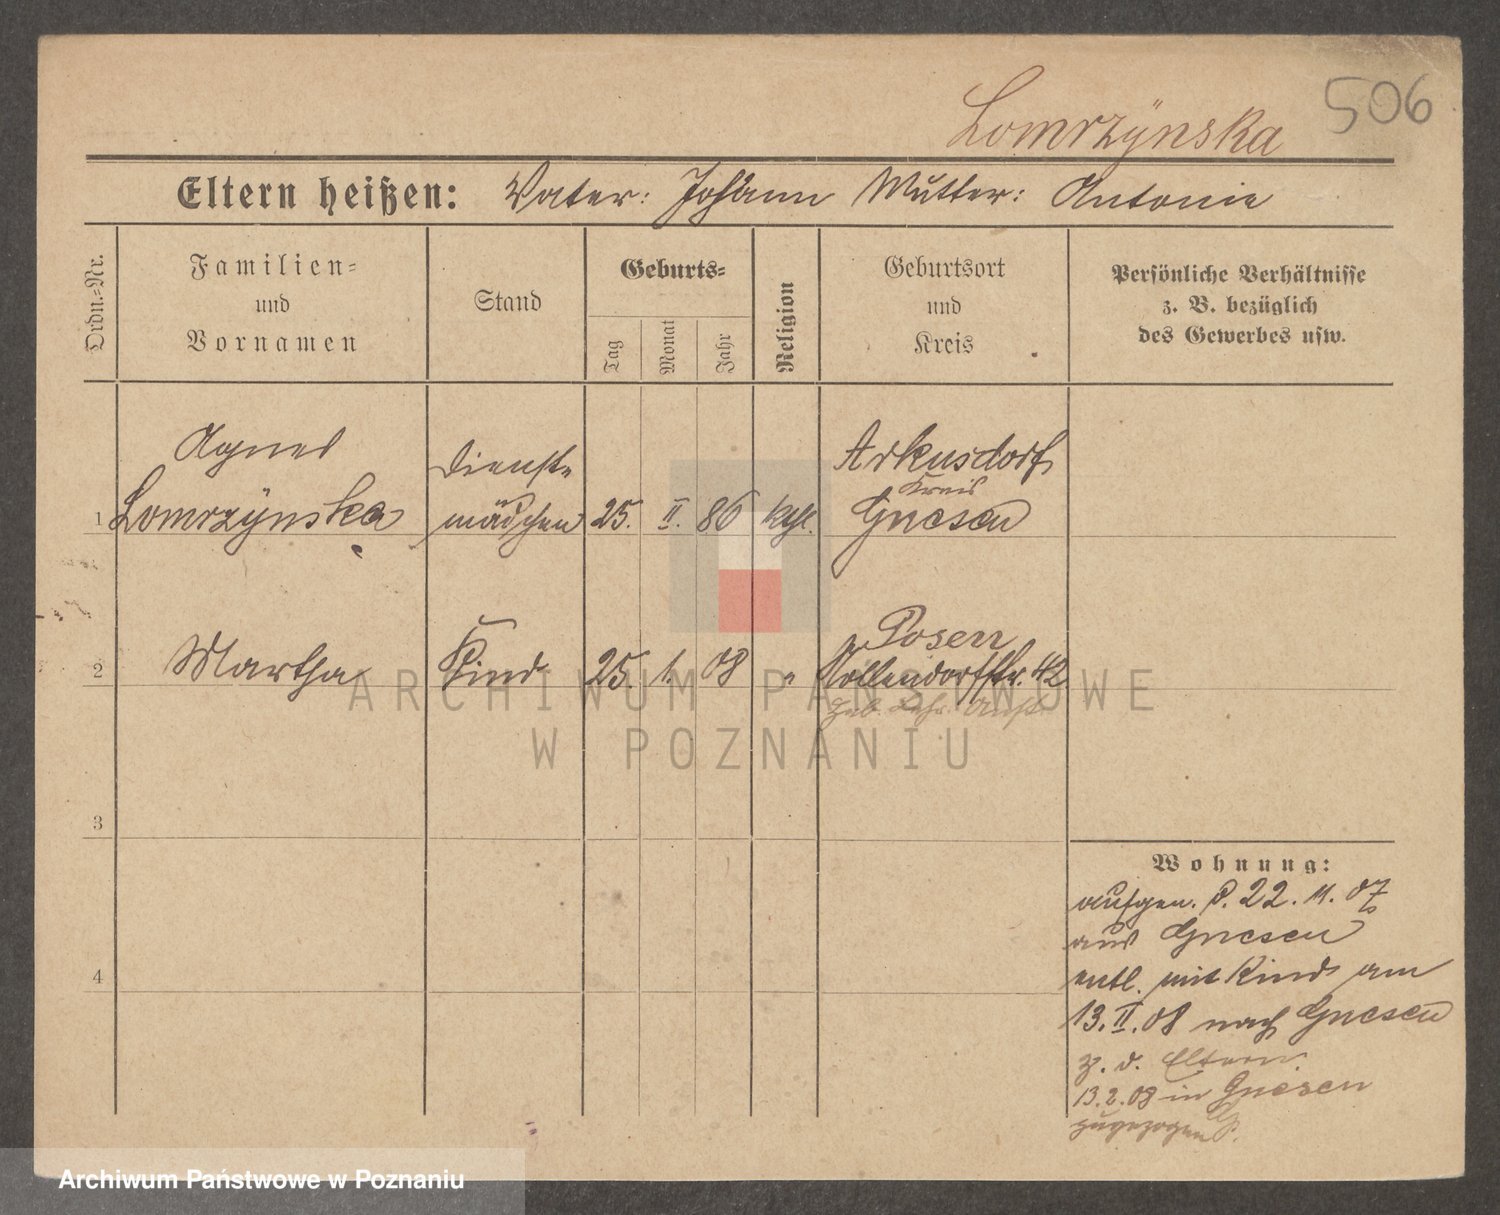 506
Lomrzÿnska
Eltern heißen: Vater: Johann Mutter: Antonie
Ordn.-Nr.
Familien-
und
Vornamen
Stand
Geburts-
Tag
Monat
Jahr
Religion
Geburtsort
und
Kreis
Persönliche Verhältnisse
z. B. bezüglich
des Gewerbes usw.
1
Agnes
Lomrzÿnska
Dienst-
mädchen
25. II. 86 kath.
Arkusdorf
Kreis
Gnesen
2
Martha
Kind
25. 1. 08 "
Posen
Nollendorfstr. 42
3
4
Wohnung:
aufgen. P. 22. 11. 07
aus Gnesen
entl. mit Kind am
13. II. 08 nach Gnesen
z. d. Eltern.
13.2.08 in Gnesen
zugezogen
ARCHIWUM PAŃSTWOWE
W POZNANIU
Archiwum Państwowe w Poznaniu